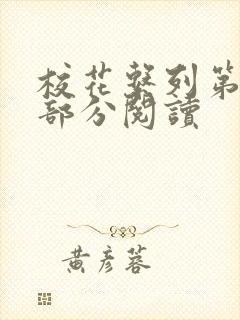 校花系列第
部分閱讀
黃彥蓉